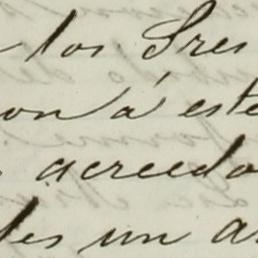 los Sres
on á este
acreedo
les un a